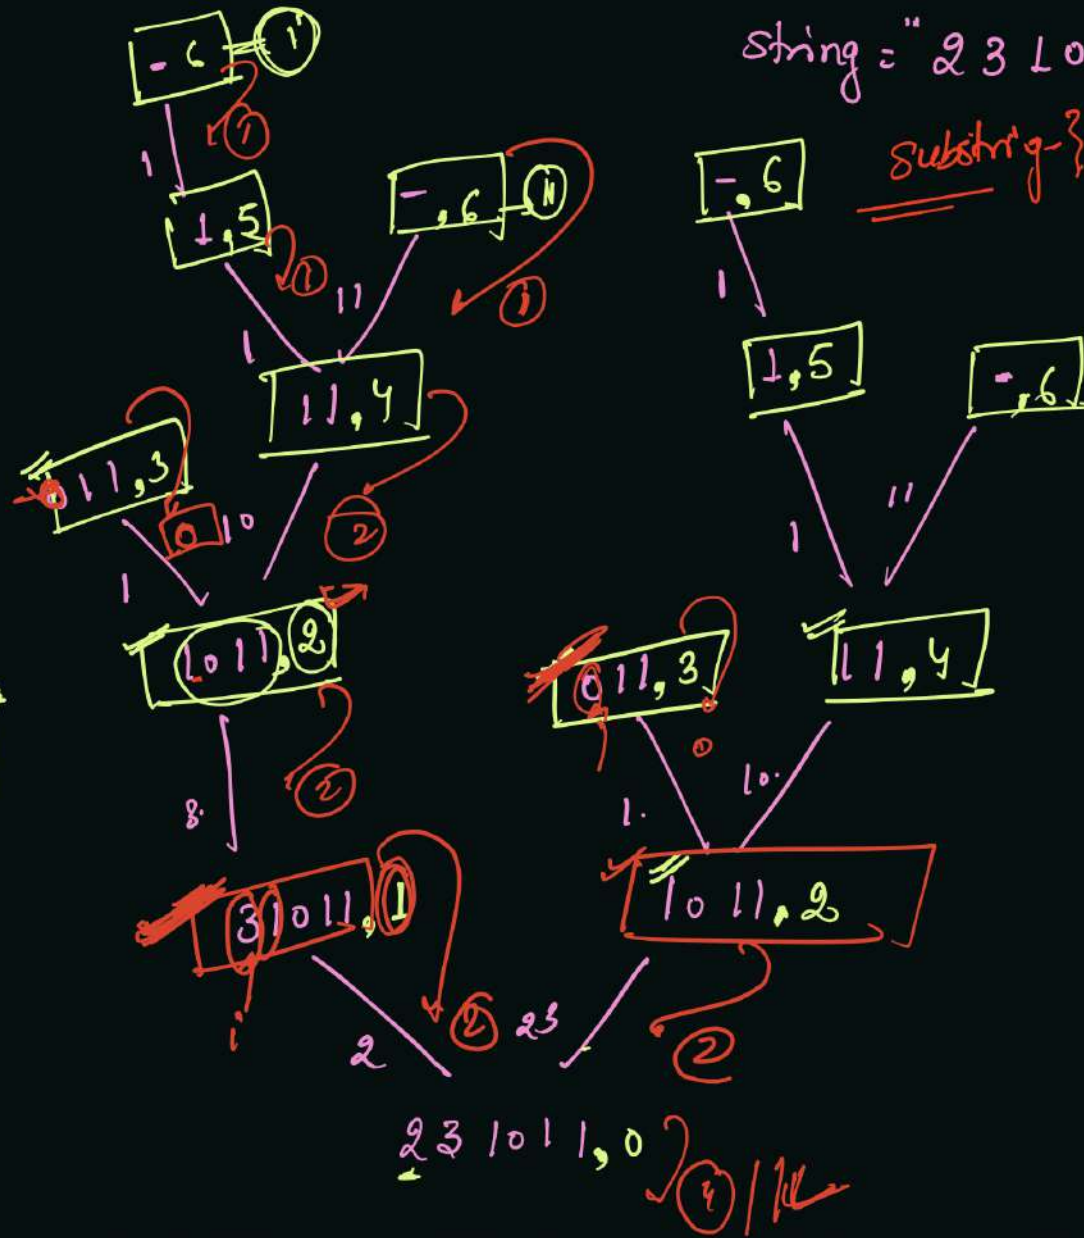 string = "2310
substrig-}
- 6
1
1
1
1,5
1
-,6
11
1
1
11,4
2
011,3
0
10
1
1011,2
2
3
31011,1
1
2
2
231011,0
4
-,6
1
1,5
-,6
1
11
11,4
011,3
0
1.
10.
1011,2
23
2